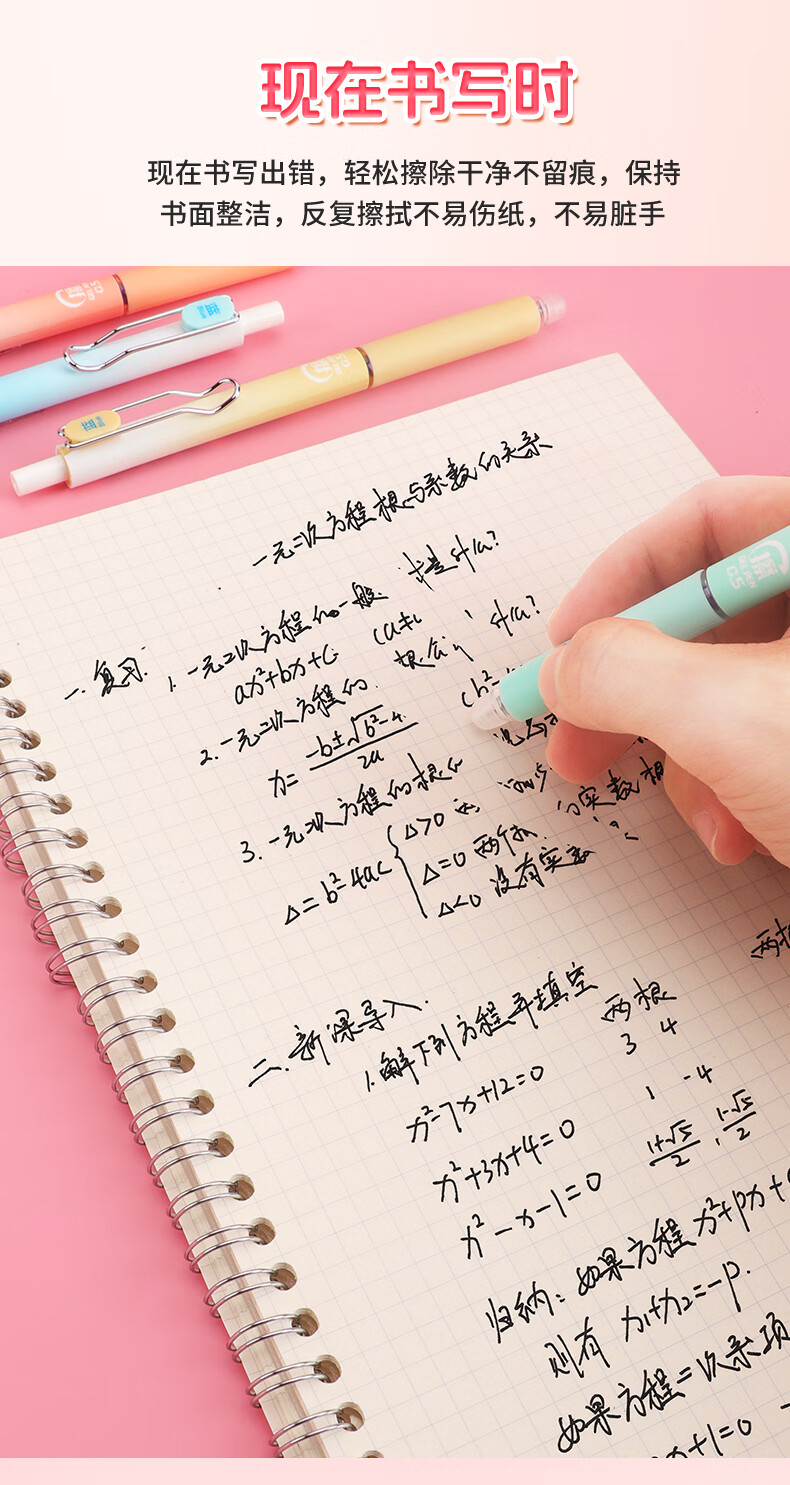 现在书写时
现在书写出错，轻松擦除干净不留痕，保持
书面整洁，反复擦拭不易伤纸，不易脏手
一元二次方程根与系数的关系
一.复习: 1.一元二次方程的一般 式是什么?
ax²+bx+c
2.一元二次方程的 什么?
x= -b±√b²-4 / 2a
3.一元二次方程的根的
Δ=b²-4ac { Δ>0 两
Δ=0 两个 的实数根
Δ<0 没有实数
两根
二.新课导入.
1.解下列方程并填空 两根
x²-7x+12=0 3 4
x²+3x+4=0 1 -4
x²-x-1=0 1+√5/2 , 1-√5/2
归纳: 如果方程x²+px+
则有 x₁+x₂=-p.
如果方程二次系项
x+1=0